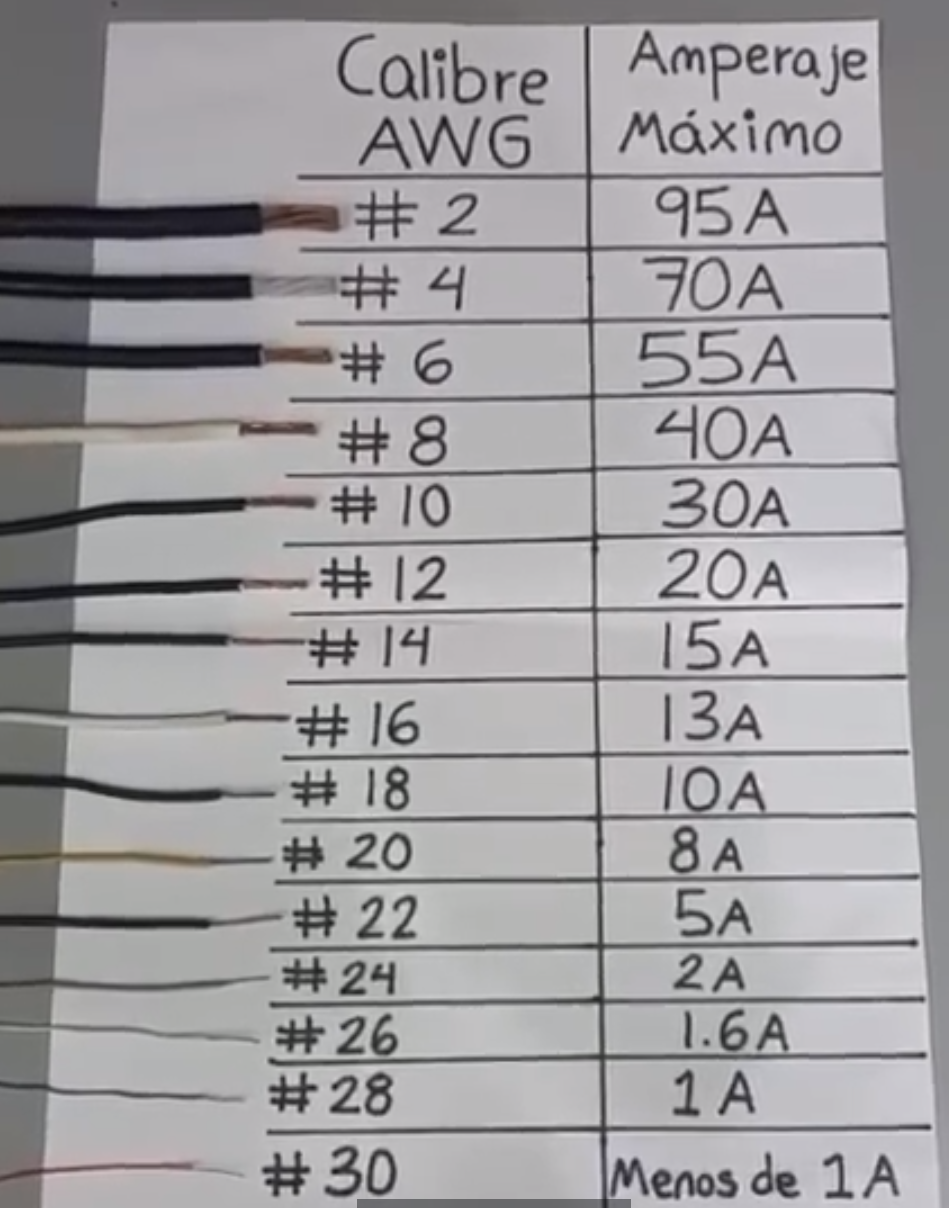 Calibre AWG Amperaje Máximo
# 2 95A
# 4 70A
# 6 55A
# 8 40A
# 10 30A
# 12 20A
# 14 15A
# 16 13A
# 18 10A
# 20 8A
# 22 5A
# 24 2A
# 26 1.6A
# 28 1A
# 30 Menos de 1A